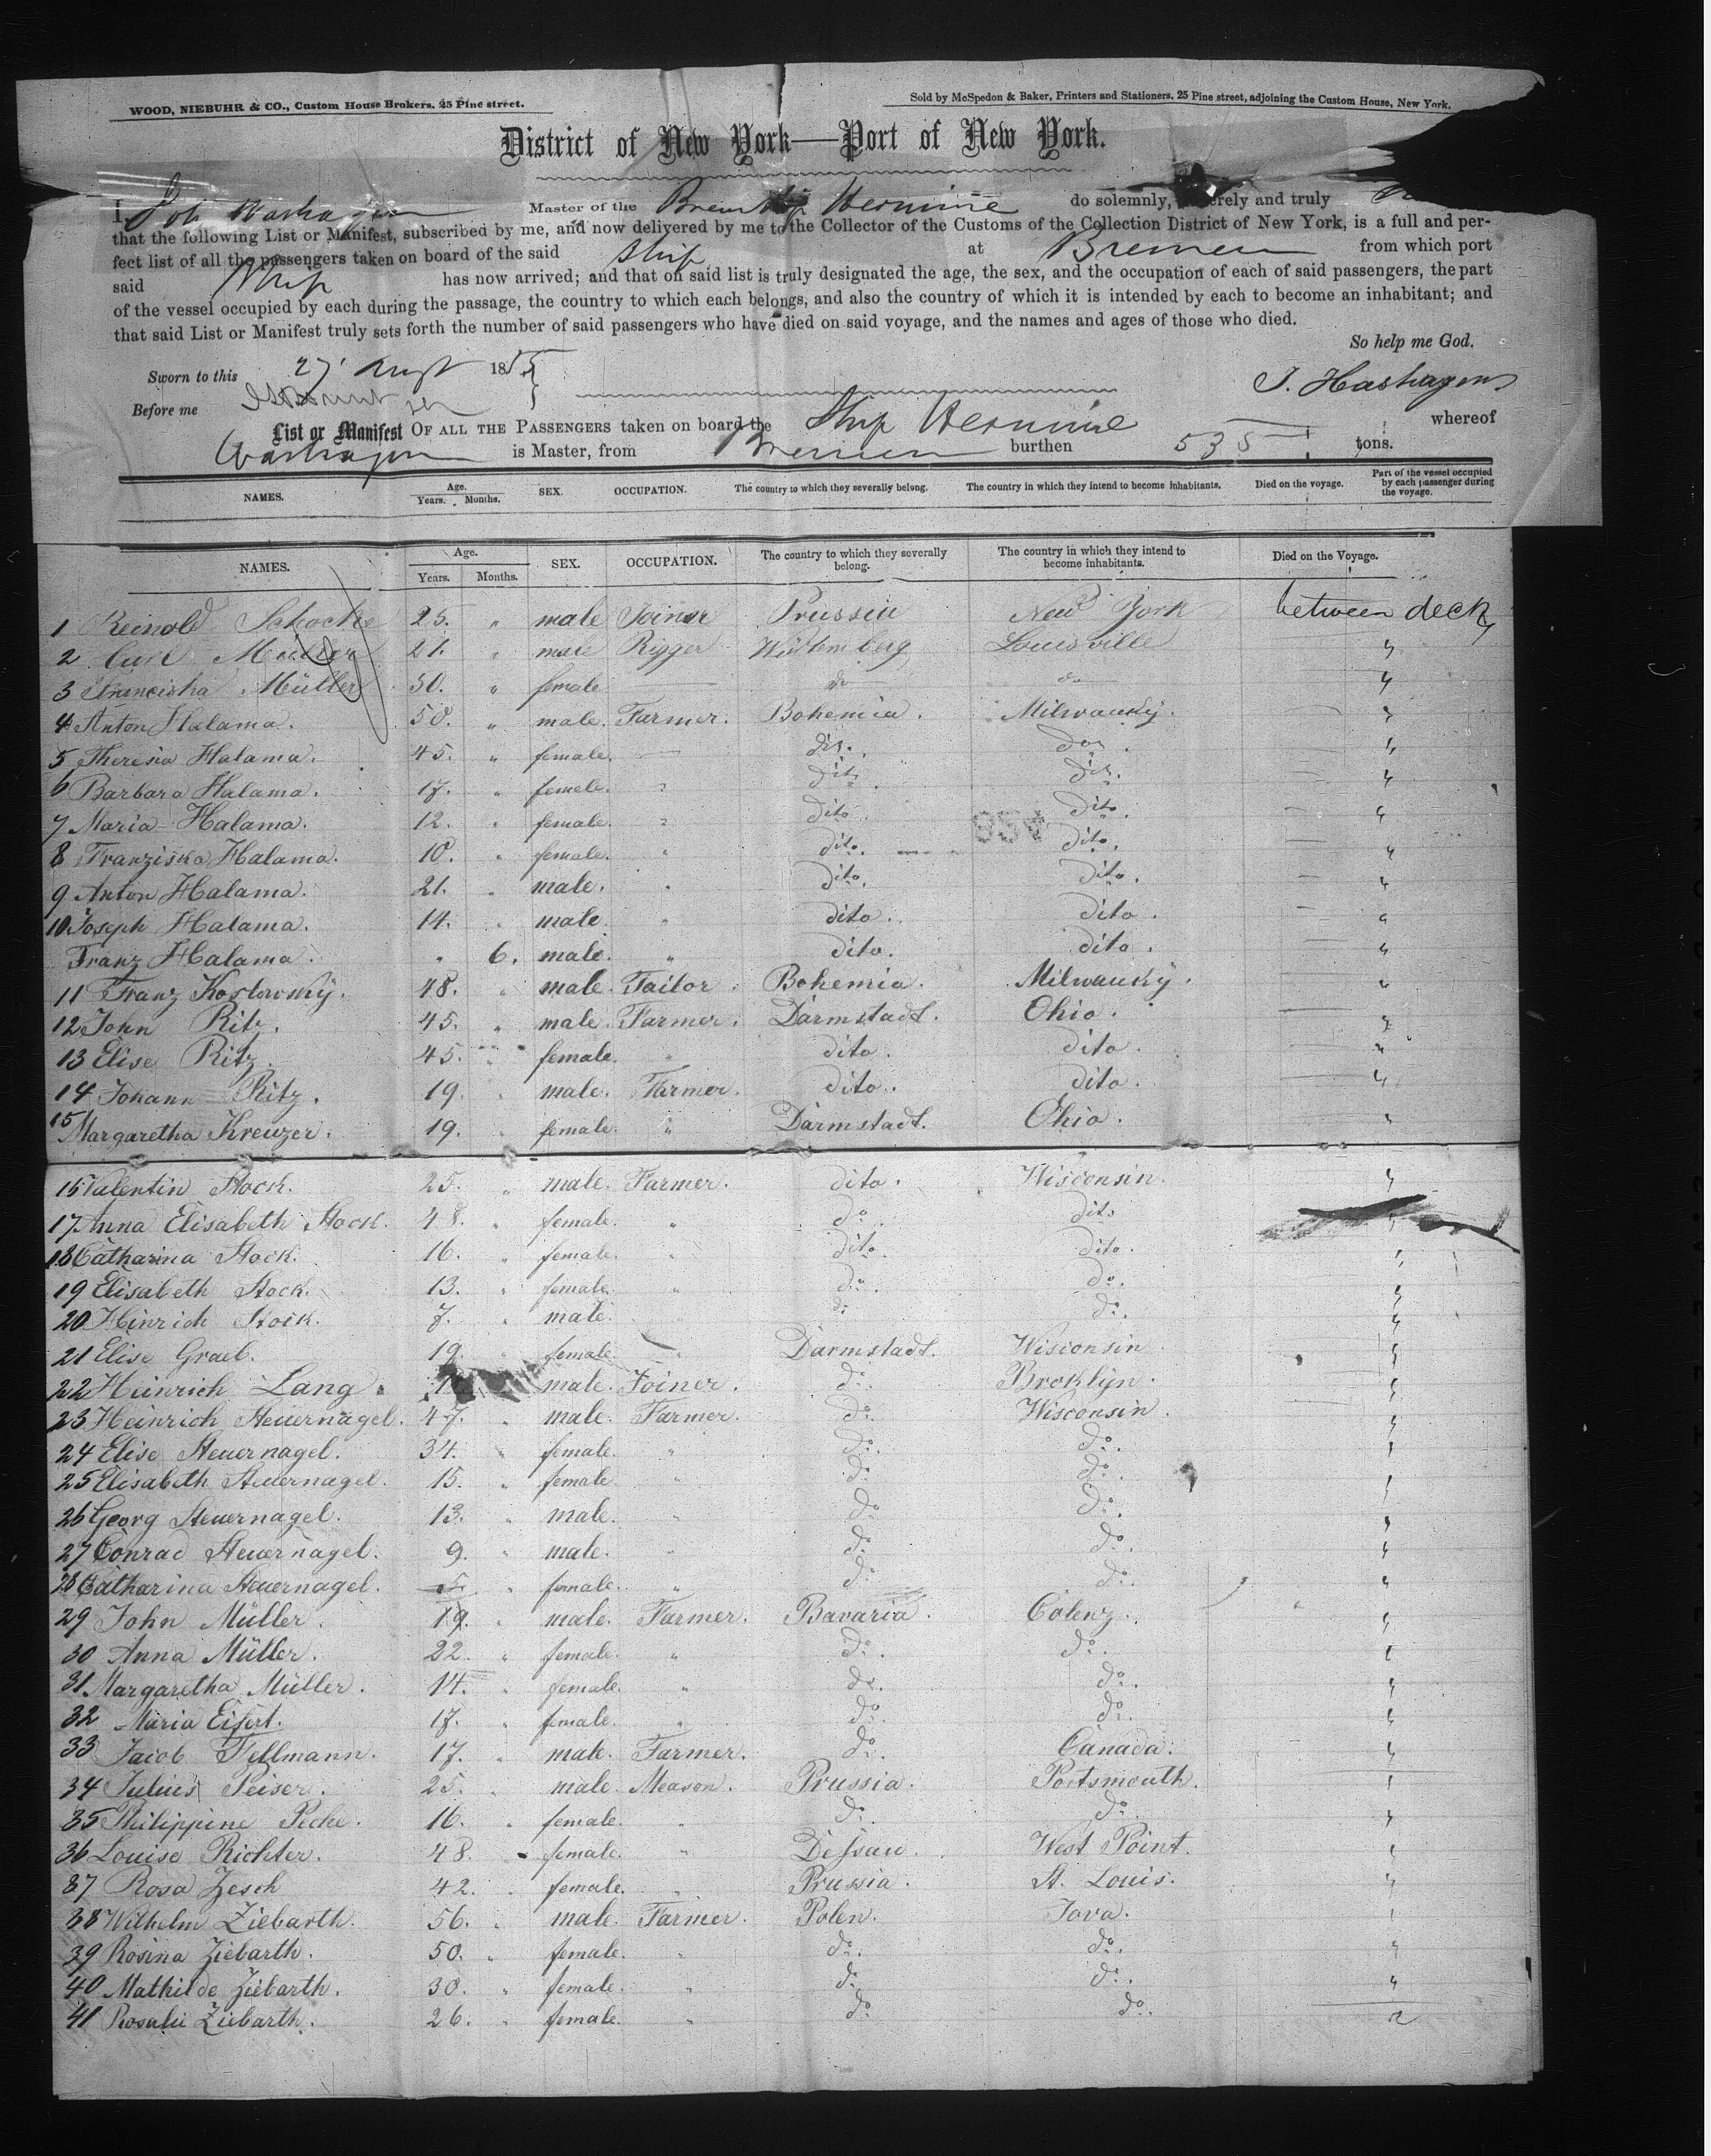 WOOD, NIEBUHR & CO., Custom House Brokers. 25 Pine street.
Sold by McSpedon & Baker, Printers and Stationers, 25 Pine street, adjoining the Custom House, New York.
District of New York—Port of New York.
I, Joh Hashagen Master of the Brem Ship Hermine do solemnly, and truly
that the following List or Manifest, subscribed by me, and now delivered by me to the Collector of the Customs of the Collection District of New York, is a full and per-
fect list of all the passengers taken on board of the said Ship at Bremen from which port
said Ship has now arrived; and that on said list is truly designated the age, the sex, and the occupation of each of said passengers, the part
of the vessel occupied by each during the passage, the country to which each belongs, and also the country of which it is intended by each to become an inhabitant; and
that said List or Manifest truly sets forth the number of said passengers who have died on said voyage, and the names and ages of those who died.
So help me God.
Sworn to this 27 August 1855
J. Hashagen
Before me
List or Manifest OF ALL THE PASSENGERS taken on board the Ship Hermine whereof
Hashagen is Master, from Bremen burthen 535 tons.
NAMES. Age. Years. Months. SEX. OCCUPATION. The country to which they severally belong. The country in which they intend to become inhabitants. Died on the voyage. Part of the vessel occupied by each passenger during the voyage.
NAMES. Age. Years. Months. SEX. OCCUPATION. The country to which they severally belong. The country in which they intend to become inhabitants. Died on the Voyage.
1 Reinold 25. " male Joiner Prussia New York between deck
2 Carl Müller 21. " male Rigger Würtemberg Louisville "
3 Franciska Müller 50. " female do do "
4 Anton Halama. 50. " male. Farmer. Bohemia. Milwauky. "
5 Theresia Halama. 45. " female. dit. do. "
6 Barbara Halama. 17. " female. " dito. dit. "
7 Maria Halama. 12. " female. " dito dito. "
8 Franziska Halama. 10. " female. " dito. dito. "
9 Anton Halama. 21. " male. " dito. dito. "
10 Joseph Halama. 14. " male. " dito. dito. "
Franz Halama. " 6. male. " dito. dito. "
11 Franz Koslowsky. 48. " male. Tailor. Bohemia. Milwauky. "
12 John Ritz. 45. " male. Farmer. Darmstadt. Ohio. "
13 Elise Ritz. 45. " female. " dito. dito. "
14 Johann Ritz. 19. " male. Farmer. dito. dito. "
15 Margaretha Kreuzer. 19. " female. " Darmstadt. Ohio. "
16 Valentin Stock. 25. " male. Farmer. dito. Wisconsin. "
17 Anna Elisabeth Stock. 48. " female. " do. dito "
18 Catharina Stock. 16. " female. " dito. dito. "
19 Elisabeth Stock. 13. " female. " do. do. "
20 Hinrich Stock. 7. " male. do. do. "
21 Elise Graeb. 19. female. " Darmstadt. Wisconsin. "
22 Heinrich Lang. male. Joiner. do. Broklyn. "
23 Heinrich Steuernagel. 47. " male. Farmer. do. Wisconsin. "
24 Elise Steuernagel. 34. " female. " do. do. "
25 Elisabeth Steuernagel. 15. " female. " do. do. "
26 Georg Steuernagel. 13. " male. " do. do. "
27 Conrad Steuernagel. 9. " male. " do. do. "
28 Catharina Steuernagel. 5. " female. " do. do. "
29 John Müller. 19. " male. Farmer. Bavaria. Colenz. "
30 Anna Müller. 22. " female. " do. do. "
31 Margaretha Müller. 14. " female. " do. do. "
32 Maria Eifert. 17. " female. " do. do. "
33 Jacob Fellmann. 17. " male. Farmer. do. Canada. "
34 Julius Peiser. 25. " male. Meason. Prussia. Portsmouth. "
35 Philippine Peche. 16. " female. " do. do. "
36 Louise Richter. 48. " female. " Dessau. West Point. "
37 Rosa Zesch 42. " female. " Prussia. St. Louis. "
38 Wilhelm Ziebarth. 56. " male. Farmer. Polen. Jova. "
39 Rosina Ziebarth. 50. " female. " do. do. "
40 Mathilde Ziebarth. 30. " female. " do. do. "
41 Rosalie Ziebarth. 26. " female. " do. do. "